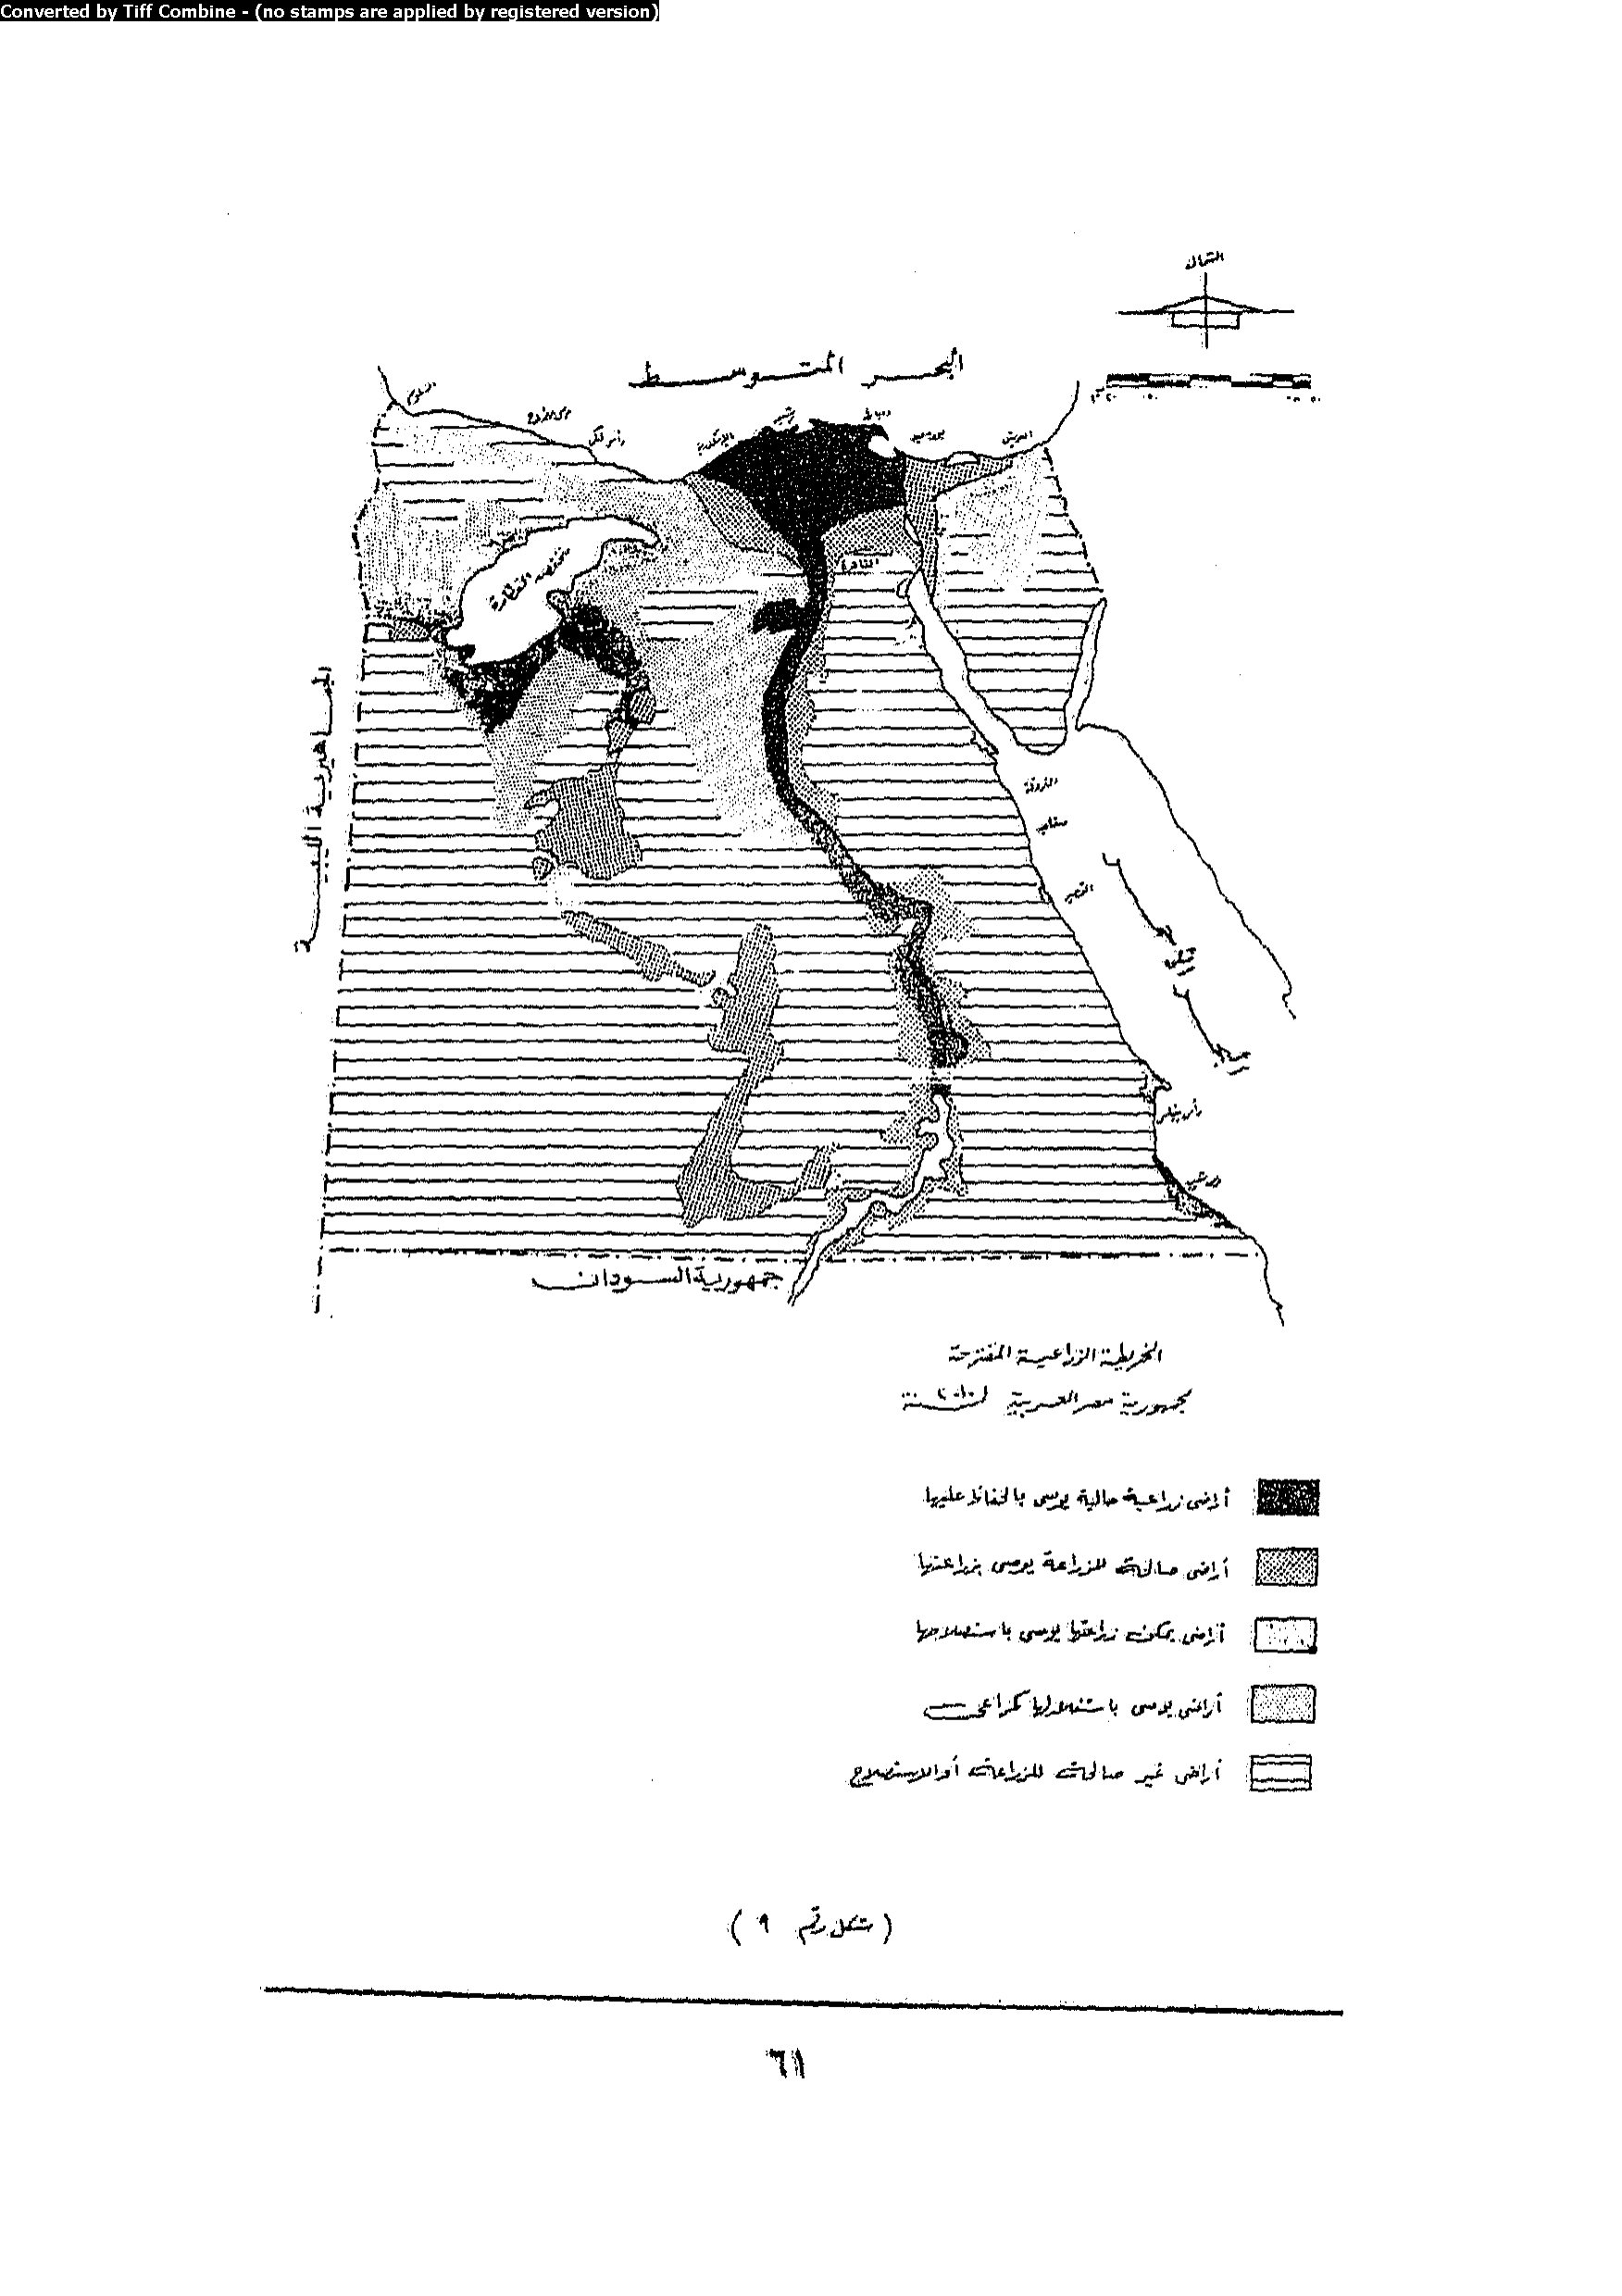 Converted by Tiff Combine - (no stamps are applied by registered version)
الشمال
البحر المتوسط
السلوم
رشيد
دمياط
الإسكندرية
بورسعيد
العريش
منخفض القطارة
القاهرة
الجماهيرية الليبية
الغردقة
سفاجا
القصير
البحر
رأس بناس
جمهورية السودان
الخريطة الزراعية المقترحة
لجمهورية مصر العربية لسنة
أراضى زراعية حالية يوصى بالحفاظ عليها
أراضى صالحة للزراعة يوصى بزراعتها
أراضى يمكن زراعتها يوصى باستصلاحها
أراضى يوصى باستغلالها كمراعى
أراضى غير صالحة للزراعة أو الاستصلاح
( شكل رقم ٩ )
٦١